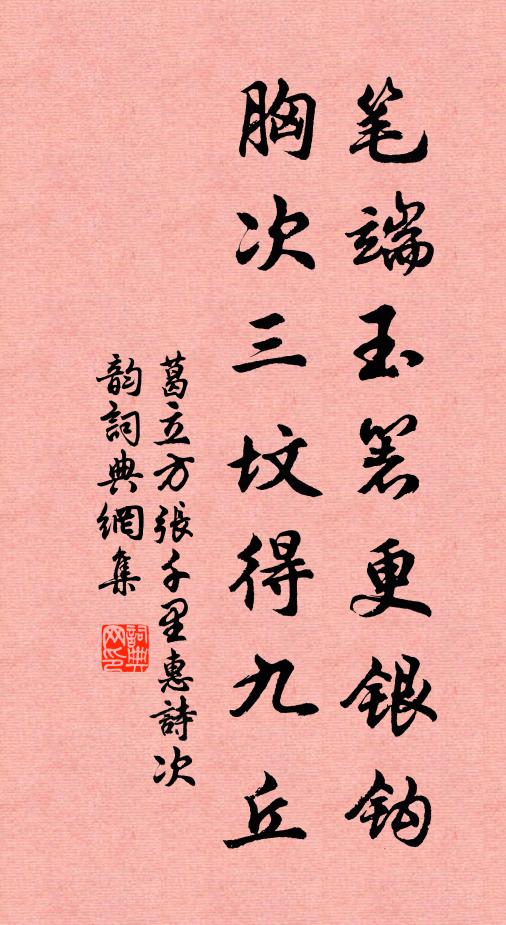 笔端玉箸更银钩
胸次三坟得九丘
葛立方張千里惠詩次
韵詞典網集
詞典网印